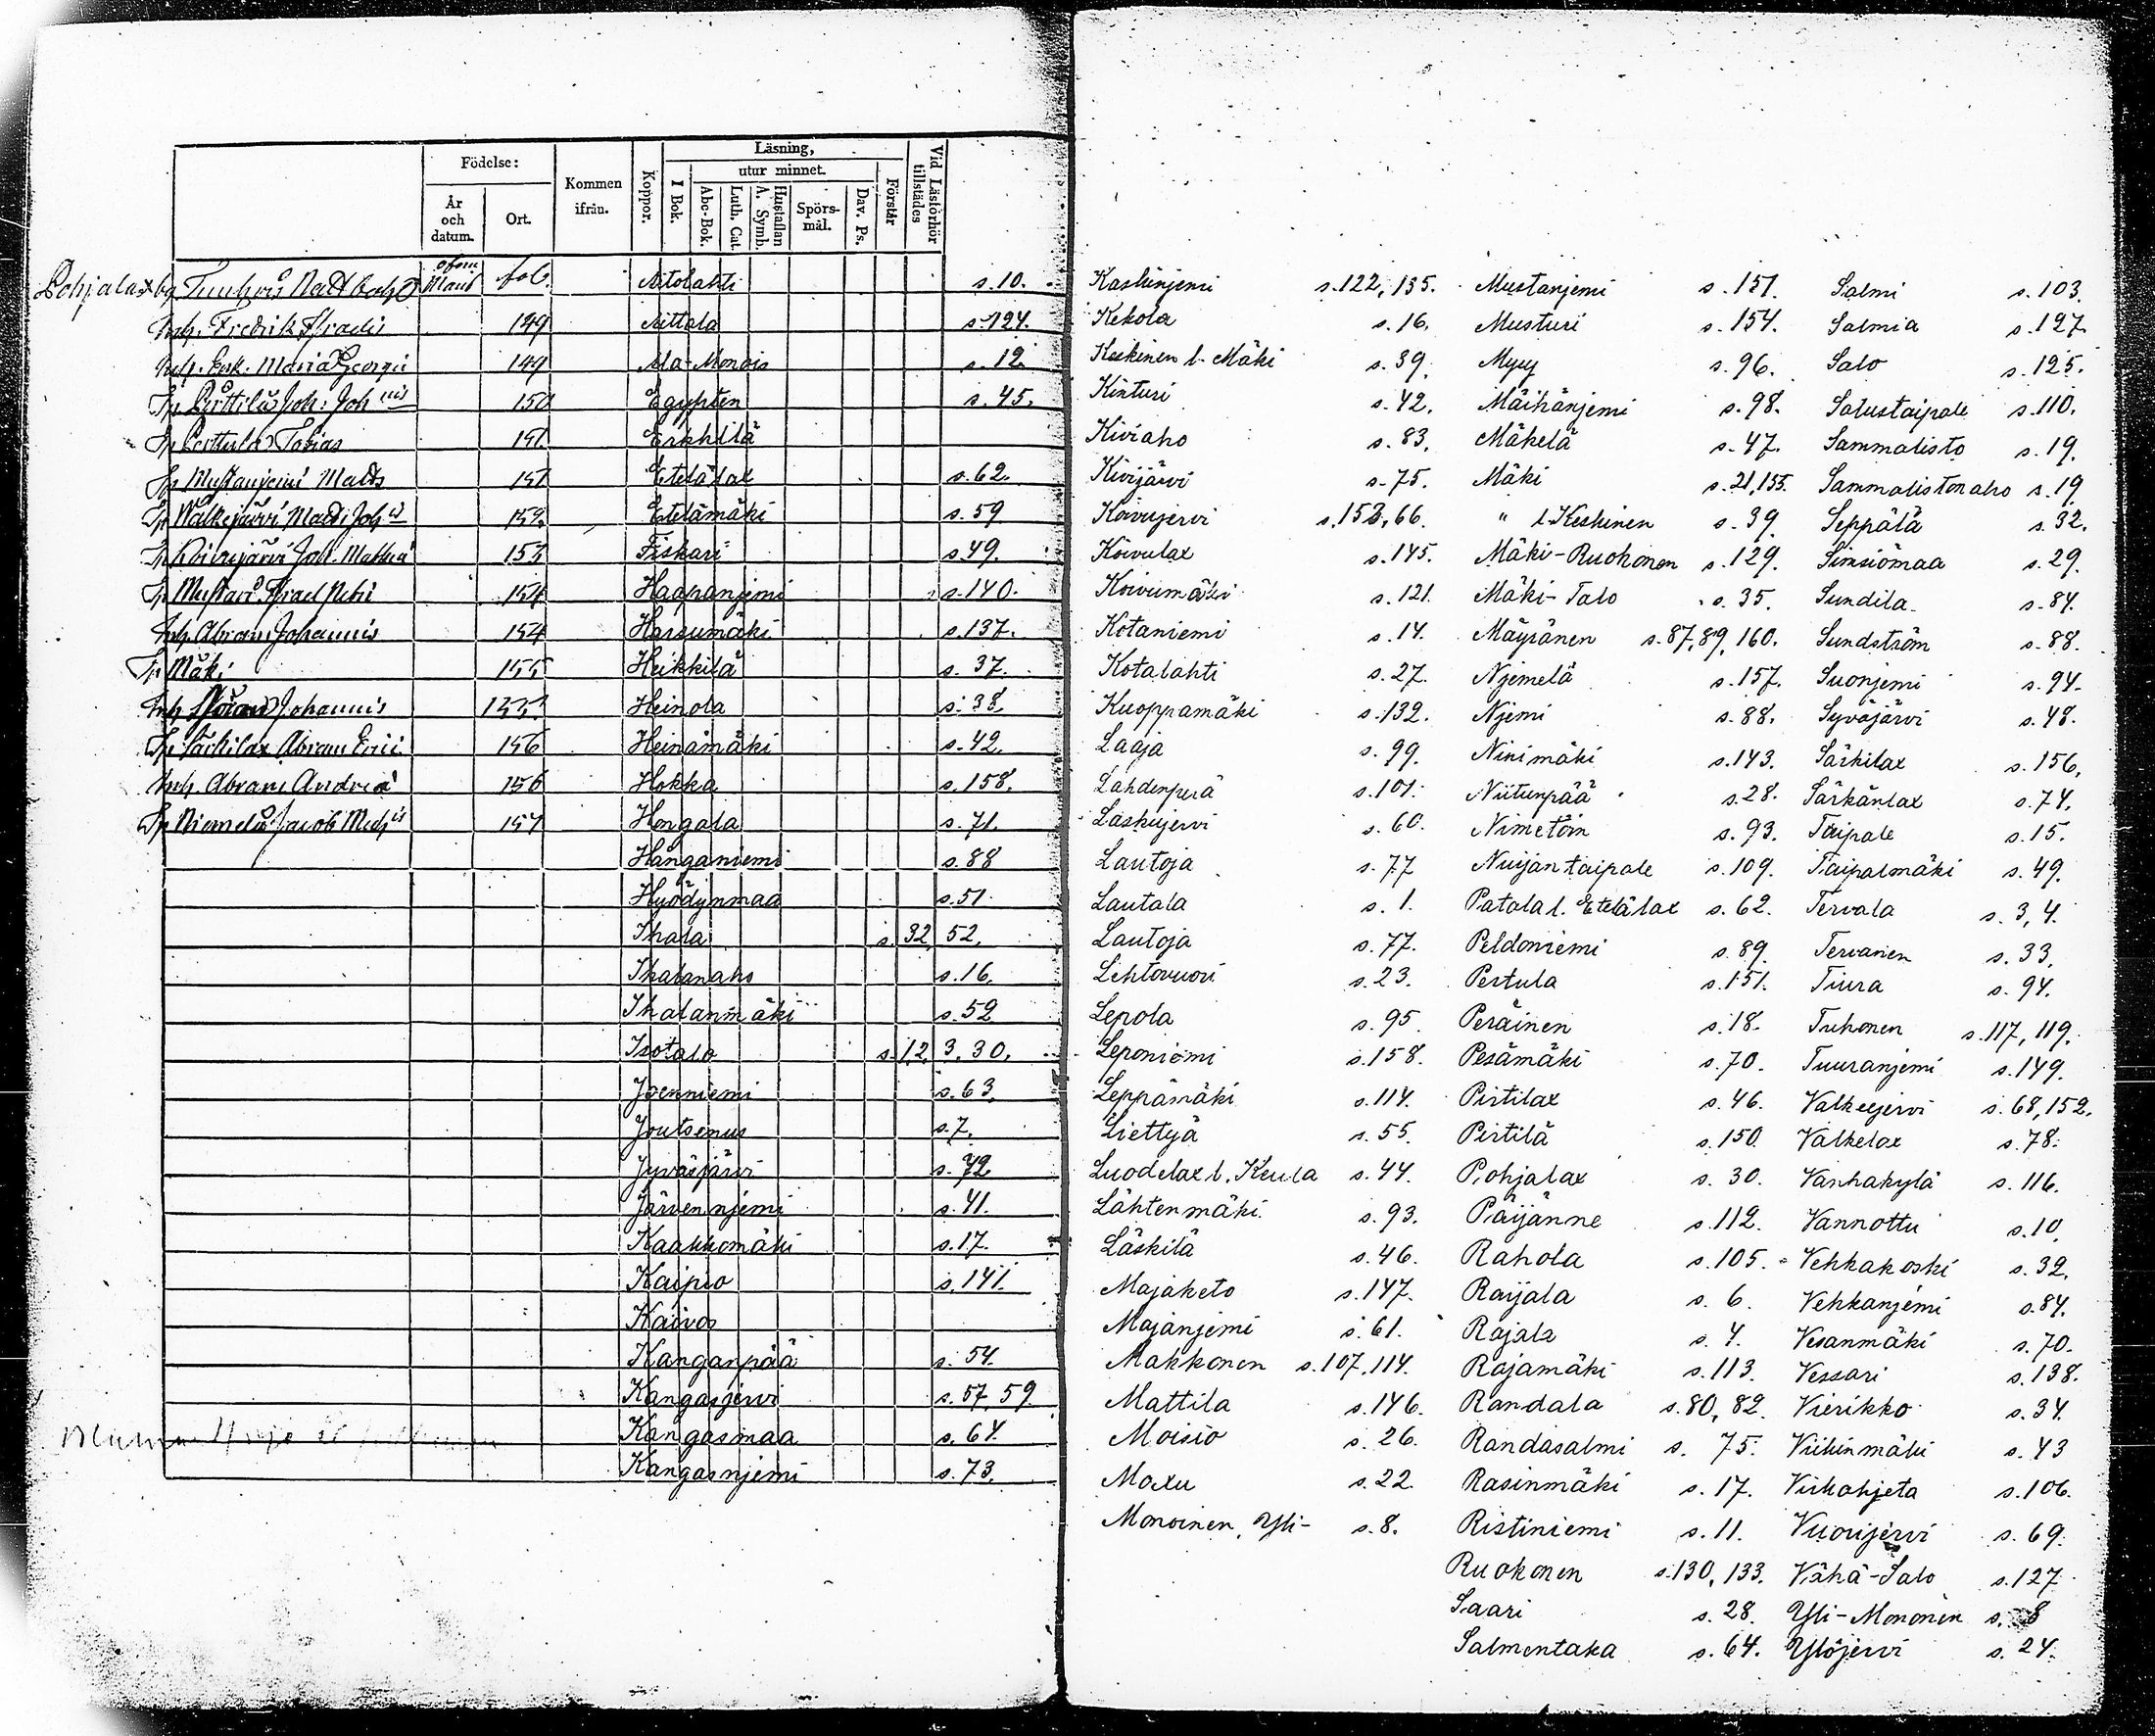 Födelse:
År och datum.
Ort.
Kommen ifrån.
Koppor.
Läsning,
I Bok.
utur minnet.
Abc-Bok.
Luth. Cat.
Hustaflan A. Symb.
Spörsmål.
Dav. Ps.
Förstår
Vid Läsförhör tillstädes
Pohjalax by fol.
Inh. Fredrik 149
Inh. Enk. Maria Georgii 149
Joh: Joh 150
Tobias 151.
Mustanjemi Matts 151
152
Koivujärvi Joh. 153
154
Inh. Abram Johannis 154
Mäki 155
Johannis 155
Särkilax Abram Erici 156
Inh. Abram Andreæ 156
Niemelä Jacob 157
Aitolahti s.10.
Aittola s.124.
Ala-Monois s.12.
Egypten s.45.
Erkkilä
Etelälax s.62.
Etelämäki s.59
Fiskari s.49.
Haapanjemi s.140.
Harsumäki s.137.
Heikkilä s.37.
Heinola s.38.
Heinämäki s.42.
Hokka s.158.
Hongala s.71.
Hånganiemi s.88
Hyödynmaa s.51.
Ihala s.32, 52.
Ihalanaho s.16.
Ihalanmäki s.52
Isotalo s.12, 3, 30.
Joenniemi s.63.
Joutsenus s.7.
Jyväsjärvi s.72
Järvennjemi s.41.
Kaakkomäki s.17.
Kaipio s.141.
Kaivos
Kanganpää s.54.
Kangasjervi s.57, 59.
Kangasmaa s.64.
Kangasnjemi s.73.
Kaskinjemi s.122, 135.
Kekola s.16.
Keskinen l. Mäki s.39.
Kinturi s.42.
Kiviaho s.83.
Kivijärvi s.75.
Koivujervi s.153, 66.
Koivulax s.145.
Koivumäki s.121.
Kotaniemi s.14.
Kotalahti s.27.
Kuoppamäki s.132.
Laaja s.99.
Lahdenperä s.101.
Laskujervi s.60.
Lautoja s.77
Lautala s.1.
Lautoja s.77.
Lehtovuori s.23.
Lepola s.95.
Leponiemi s.158.
Leppämäki s.114.
Liettyä s.55.
Luodelax l. Keula s.44.
Lähtenmäki s.93.
Läskilä s.46.
Majaketo s.147.
Majanjemi s.61.
Makkonen s.107, 114.
Mattila s.146.
Moisio s.26.
Moxu s.22.
Monoinen, Yli- s.8.
Mustanjemi s.151.
Musturi s.154.
Myyy s.96.
Mäihänjemi s.98.
Mäkelä s.47.
Mäki s.21, 155.
" l. Keskinen s.39.
Mäki-Ruokonen s.129.
Mäki-Talo s.35.
Mäyränen s.87, 89, 160.
Njemelä s.157.
Njemi s.88.
Ninimäki s.143.
Niitunpää s.28.
Nimetöin s.93.
Nuijantaipale s.109.
Patala l. Etelälax s.62.
Peldoniemi s.89.
Pertula s.151.
Peräinen s.18.
Pesämäki s.70.
Pirtilax s.46.
Pirtilä s.150.
Pohjalax s.30.
Päijänne s.112.
Rahola s.105.
Raijala s.6.
Rajala s.4.
Rajamäki s.113.
Randala s.80, 82.
Randasalmi s.75.
Rasinmäki s.17.
Ristiniemi s.11.
Ruokonen s.130, 133.
Saari s.28.
Salmentaka s.64.
Salmi s.103.
Salmia s.127.
Salo s.125.
Salustaipale s.110.
Sammalisto s.19.
Sammalistonaho s.19.
Seppälä s.32.
Simsiömaa s.29.
Sundila s.84.
Sundström s.88.
Suonjemi s.94.
Syväjärvi s.48.
Särkilax s.156.
Särkänlax s.74.
Taipale s.15.
Taipalmäki s.49.
Tervala s.3, 4.
Tervanen s.33.
Tiura s.94.
Tuhonen s.117, 119.
Tuuranjemi s.149.
Valkeejervi s.68, 152.
Valkelax s.78.
Vanhakylä s.116.
Vannottu s.10.
Vehkakoski s.32.
Vehkanjemi s.84.
Vesanmäki s.70.
Vessari s.138.
Vierikko s.34.
Viikinmäki s.43
Virkahjeta s.106.
Vuorijervi s.69.
Vähä-Salo s.127.
Yli-Mononen s.8
Ylöjervi s.24.